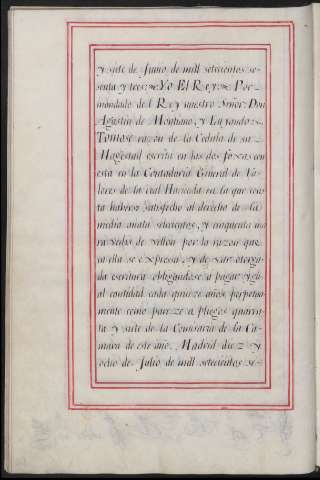 y siete de Junio de mill setecientos se-
senta y tres: Yo El Rey: Por
mandado del Rey nuestro Señor: Don
Agustin de Montiano, y Luyando:
Tomose razon de la Cedula de su
Magestad escrita en las dos foxas con
esta en la Contaduria General de Va-
lores de la Real Hacienda en la que cons-
ta haberse satisfecho al derecho de la
media anata setecientos, y cinquenta ma-
ravedis de vellon por la razon que
en ella se expresa, y dexar otorga-
da escritura obligandose a pagar ygu-
al cantidad cada quince años perpetua-
mente como parece a pliegos quaren-
ta y siete de la Comisaria de la Ca-
mara de este año. Madrid diez y
ocho de Julio de mill setecientos se-